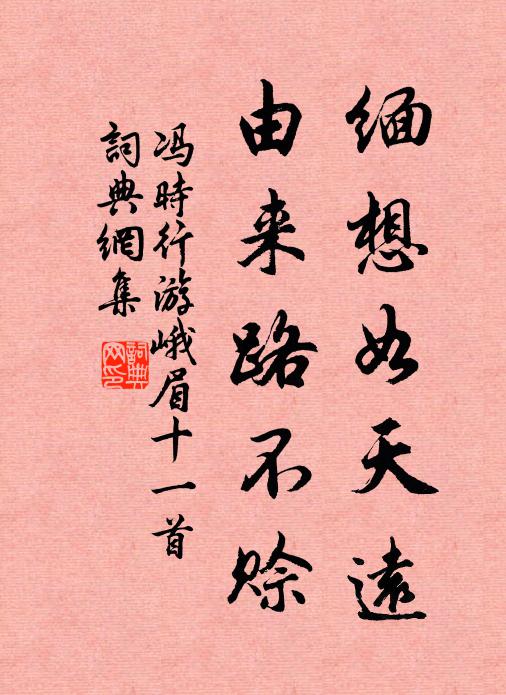 缅想如天遠
由来路不賖
冯時行游峨眉十一首
詞典網集
詞典
网印